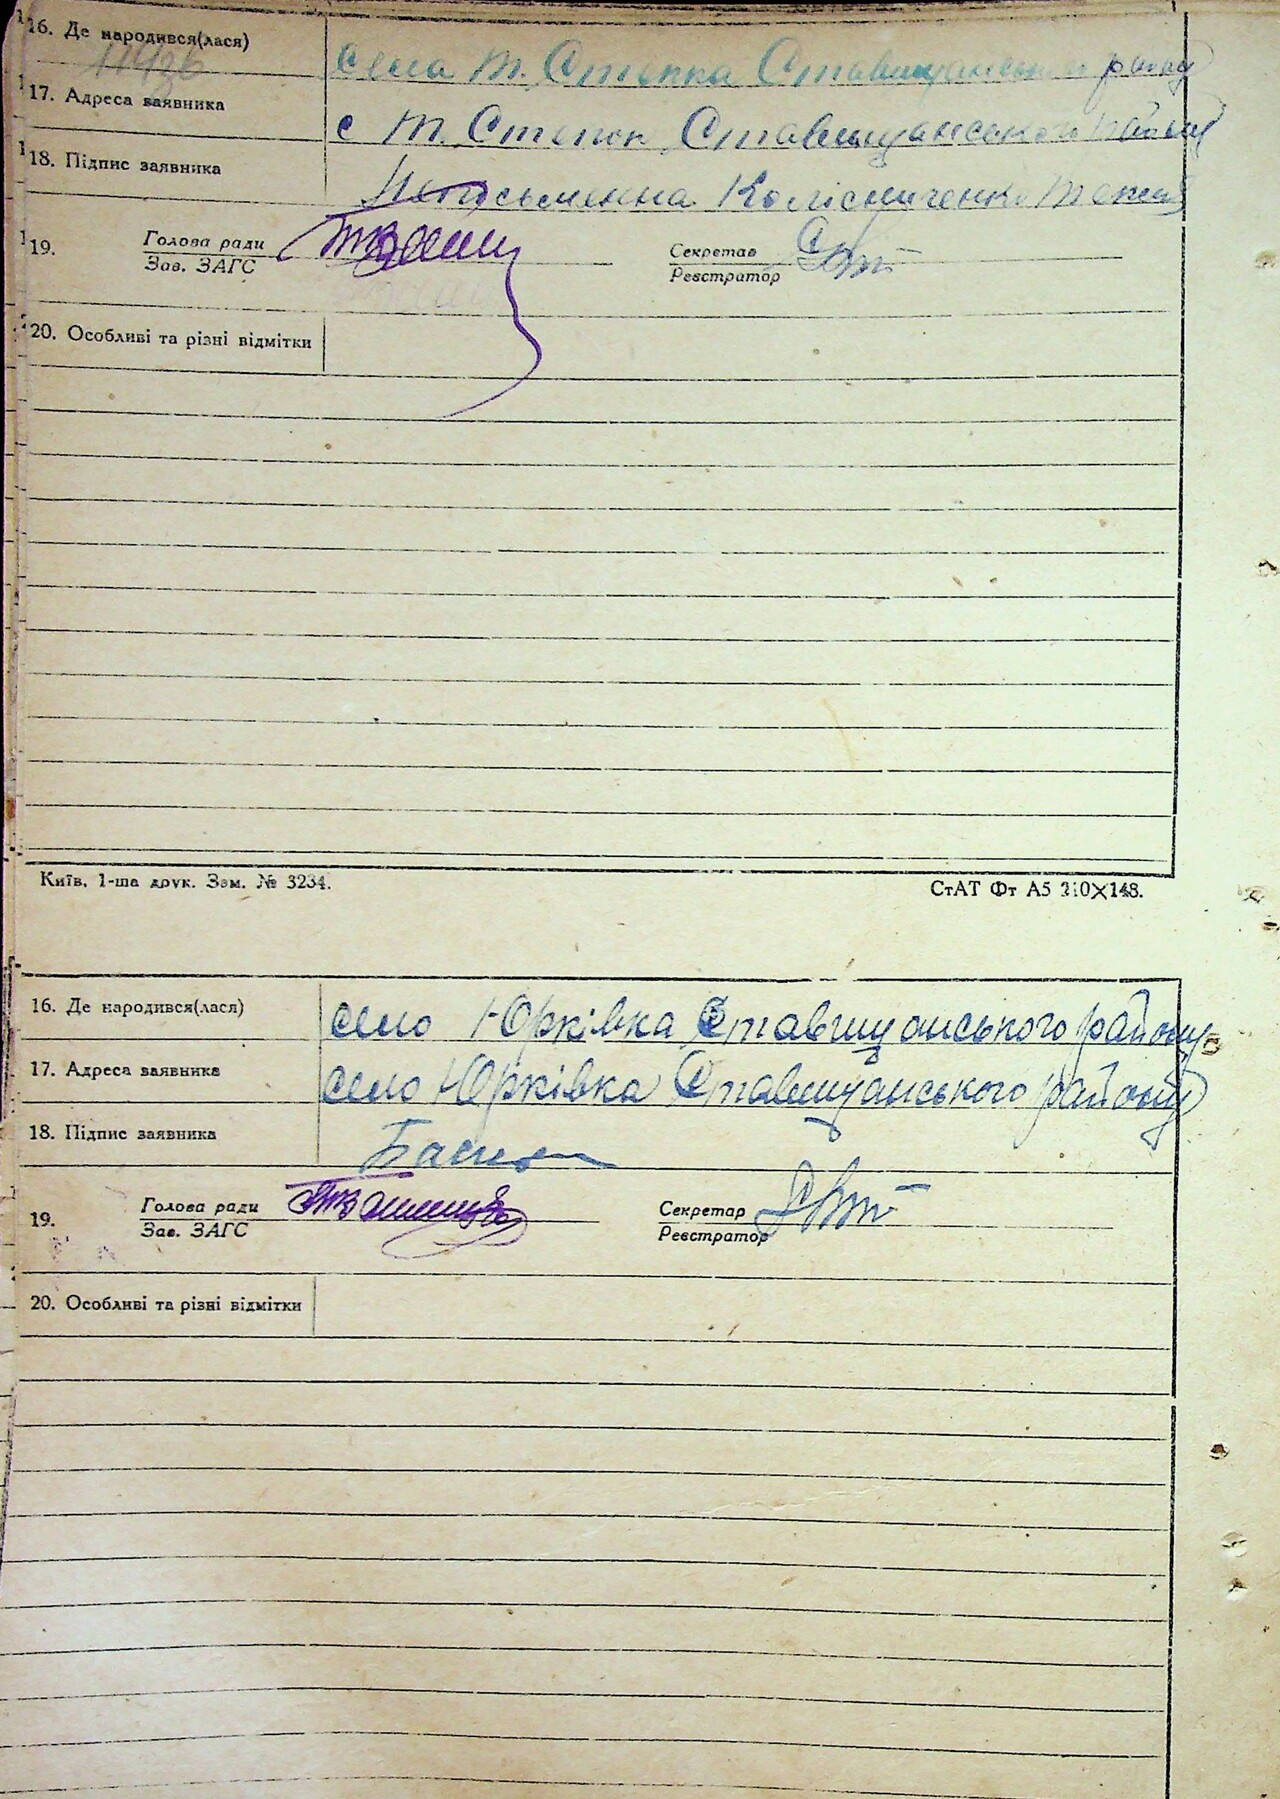 16. Де народився(лася) села Т. Степка Ставищанського району
17. Адреса заявника с Т. Степок Ставищанського району
18. Підпис заявника Неписьменна Колісниченко
19. Голова ради Секретар
Зав. ЗАГС Реєстратор
20. Особливі та різні відмітки
Київ, 1-ша друк. Зам. № 3234. СтАТ Фт А5 210×148.
16. Де народився(лася) село Юрківка Ставищанського району
17. Адреса заявника село Юрківка Ставищанського району
18. Підпис заявника
19. Голова ради Секретар
Зав. ЗАГС Реєстратор
20. Особливі та різні відмітки